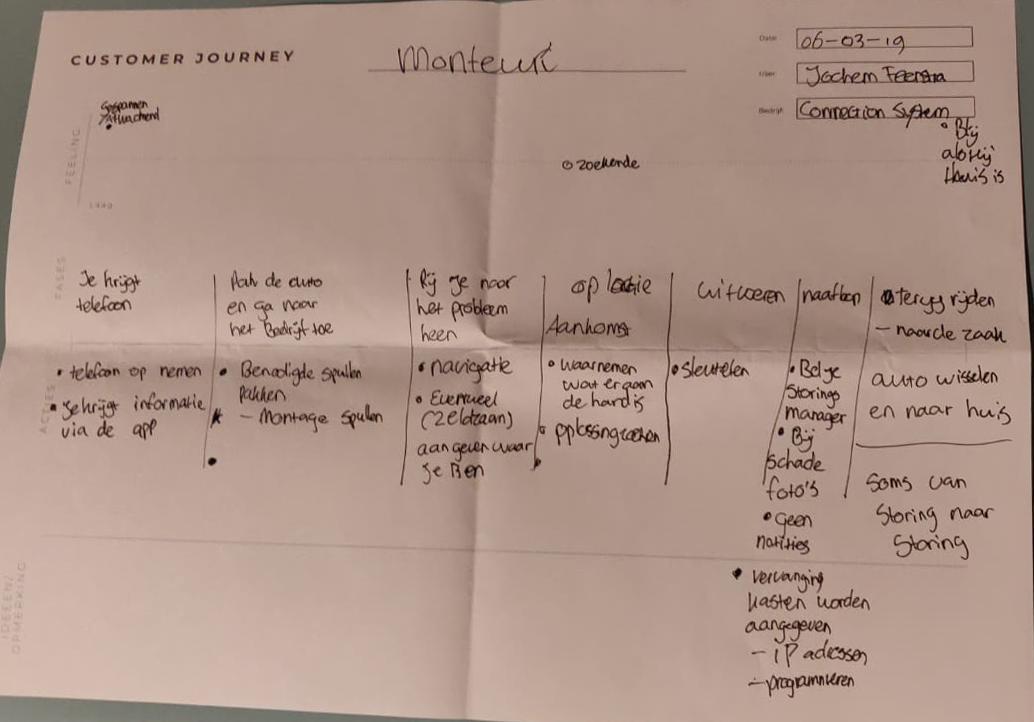 CUSTOMER JOURNEY
Monteur
Date
06-03-19
User
Jochem Feenstra
Bedrijf
Connection System
FEELING
Gespannen
Afwachtend
zoekende
Blij
als hij
thuis is
FASES
Je krijgt
telefoon
Pak de auto
en ga naar
het Bedrijf toe
Rij je naar
het probleem
heen
op locatie
Aankomst
uitvoeren
naafloop
terug rijden
- naar de zaak
ACTIES
• telefoon op nemen
• Je krijgt informatie
via de app
• Benodigde spullen
Pakken
- Montage spullen
• navigatie
• Evenueel
(zeldzaam)
aangeven waar
je Ben
• waarnemen
wat er aan
de hand is
• oplossing zoeken
• sleutelen
• Bel je
Storings
manager
• Bij
schade
foto's
• geen
notities
auto wisselen
en naar huis
Soms van
Storing naar
Storing
IDEEEN/
OPMERKING
• vervanging
kasten worden
aangegeven
- IP adressen
- programmeren